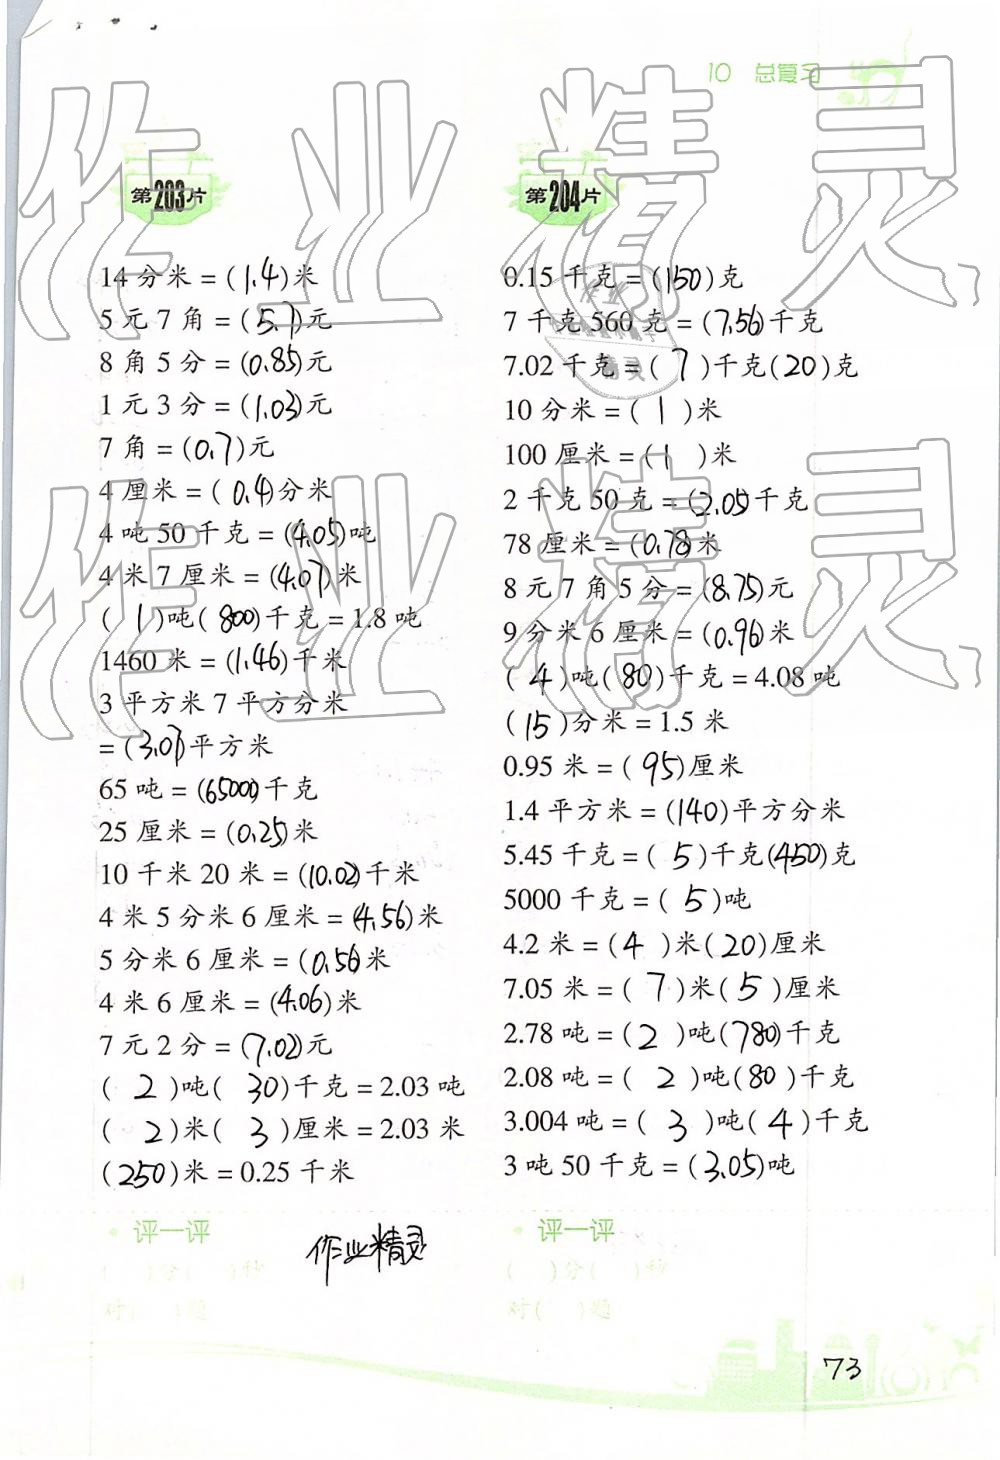 10 总复习
第203片
14分米=(1.4)米
5元7角=(5.7)元
8角5分=(0.85)元
1元3分=(1.03)元
7角=(0.7)元
4厘米=(0.4)分米
4吨50千克=(4.05)吨
4米7厘米=(4.07)米
(1)吨(800)千克=1.8吨
1460米=(1.46)千米
3平方米7平方分米
=(3.07)平方米
65吨=(65000)千克
25厘米=(0.25)米
10千米20米=(10.02)千米
4米5分米6厘米=(4.56)米
5分米6厘米=(0.56)米
4米6厘米=(4.06)米
7元2分=(7.02)元
(2)吨(30)千克=2.03吨
(2)米(3)厘米=2.03米
(250)米=0.25千米
评一评
( )分( )秒
对( )题
作业精灵
第204片
0.15千克=(150)克
7千克560克=(7.56)千克
7.02千克=(7)千克(20)克
10分米=(1)米
100厘米=(1)米
2千克50克=(2.05)千克
78厘米=(0.78)米
8元7角5分=(8.75)元
9分米6厘米=(0.96)米
(4)吨(80)千克=4.08吨
(15)分米=1.5米
0.95米=(95)厘米
1.4平方米=(140)平方分米
5.45千克=(5)千克(450)克
5000千克=(5)吨
4.2米=(4)米(20)厘米
7.05米=(7)米(5)厘米
2.78吨=(2)吨(780)千克
2.08吨=(2)吨(80)千克
3.004吨=(3)吨(4)千克
3吨50千克=(3.05)吨
评一评
( )分( )秒
对( )题
73
作业精灵
作业精灵